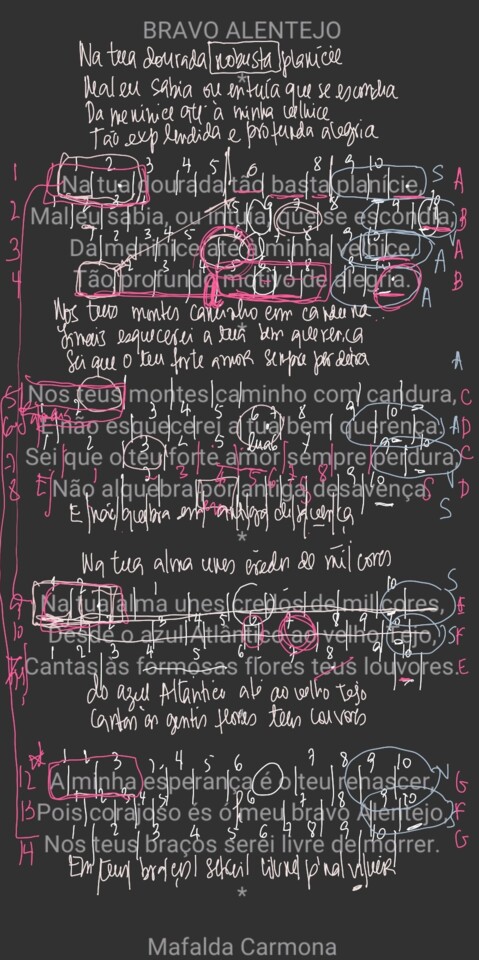 BRAVO ALENTEJO
Na tua dourada robusta planície
Mal eu sabia ou intuía que se escondia
Da meninice até à minha velhice
Tão esplendida e profunda alegria
1 2 3 4 5 6 8 9 10 S
1 Na tua dourada tão basta planície, A
2 Mal eu sabia, ou intuía que se escondia, B
3 Da meninice até à minha velhice, A
4 Tão profundo motivo de alegria. B
Nos teus montes caminho com candura
Jamais esquecerei a tua bem querença
Sei que o teu forte amor sempre perdura
*
A
5 Nos teus montes caminho com candura, C
6 Jamais esquecerei a tua bem querença, D
7 Sei que o teu forte amor sempre perdura, C
8 Não alquebra por antiga desavença. D
E não quebra em antiga desavença
*
Na tua alma unes credos de mil cores
9 Na tua alma unes credos de mil cores, E
10 Desde o azul Atlântico ao velho Tejo, F
Cantas às formosas flores teus louvores. E
do azul Atlântico até ao velho tejo
Cantas às gentis flores teus louvores
*
12 A minha esperança é o teu renascer, G
13 Pois corajoso és o meu bravo Alentejo, F
14 Nos teus braços serei livre de morrer. G
Em teus braços serei
*
Mafalda Carmona